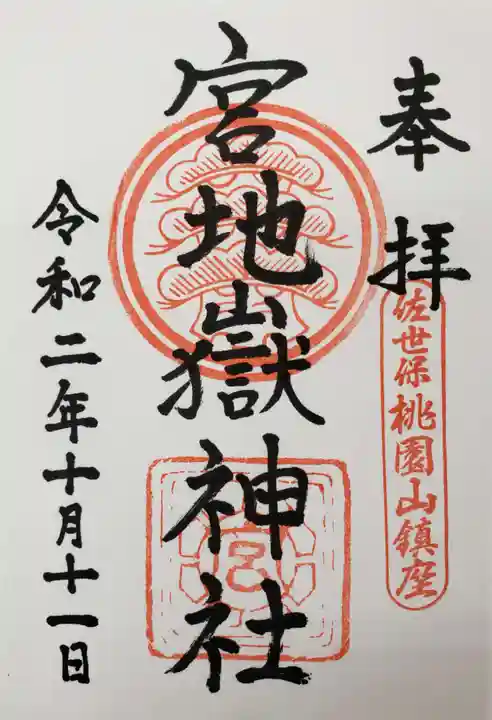 奉拝
佐世保桃園山鎮座
宮地嶽神社
令和二年十月十一日